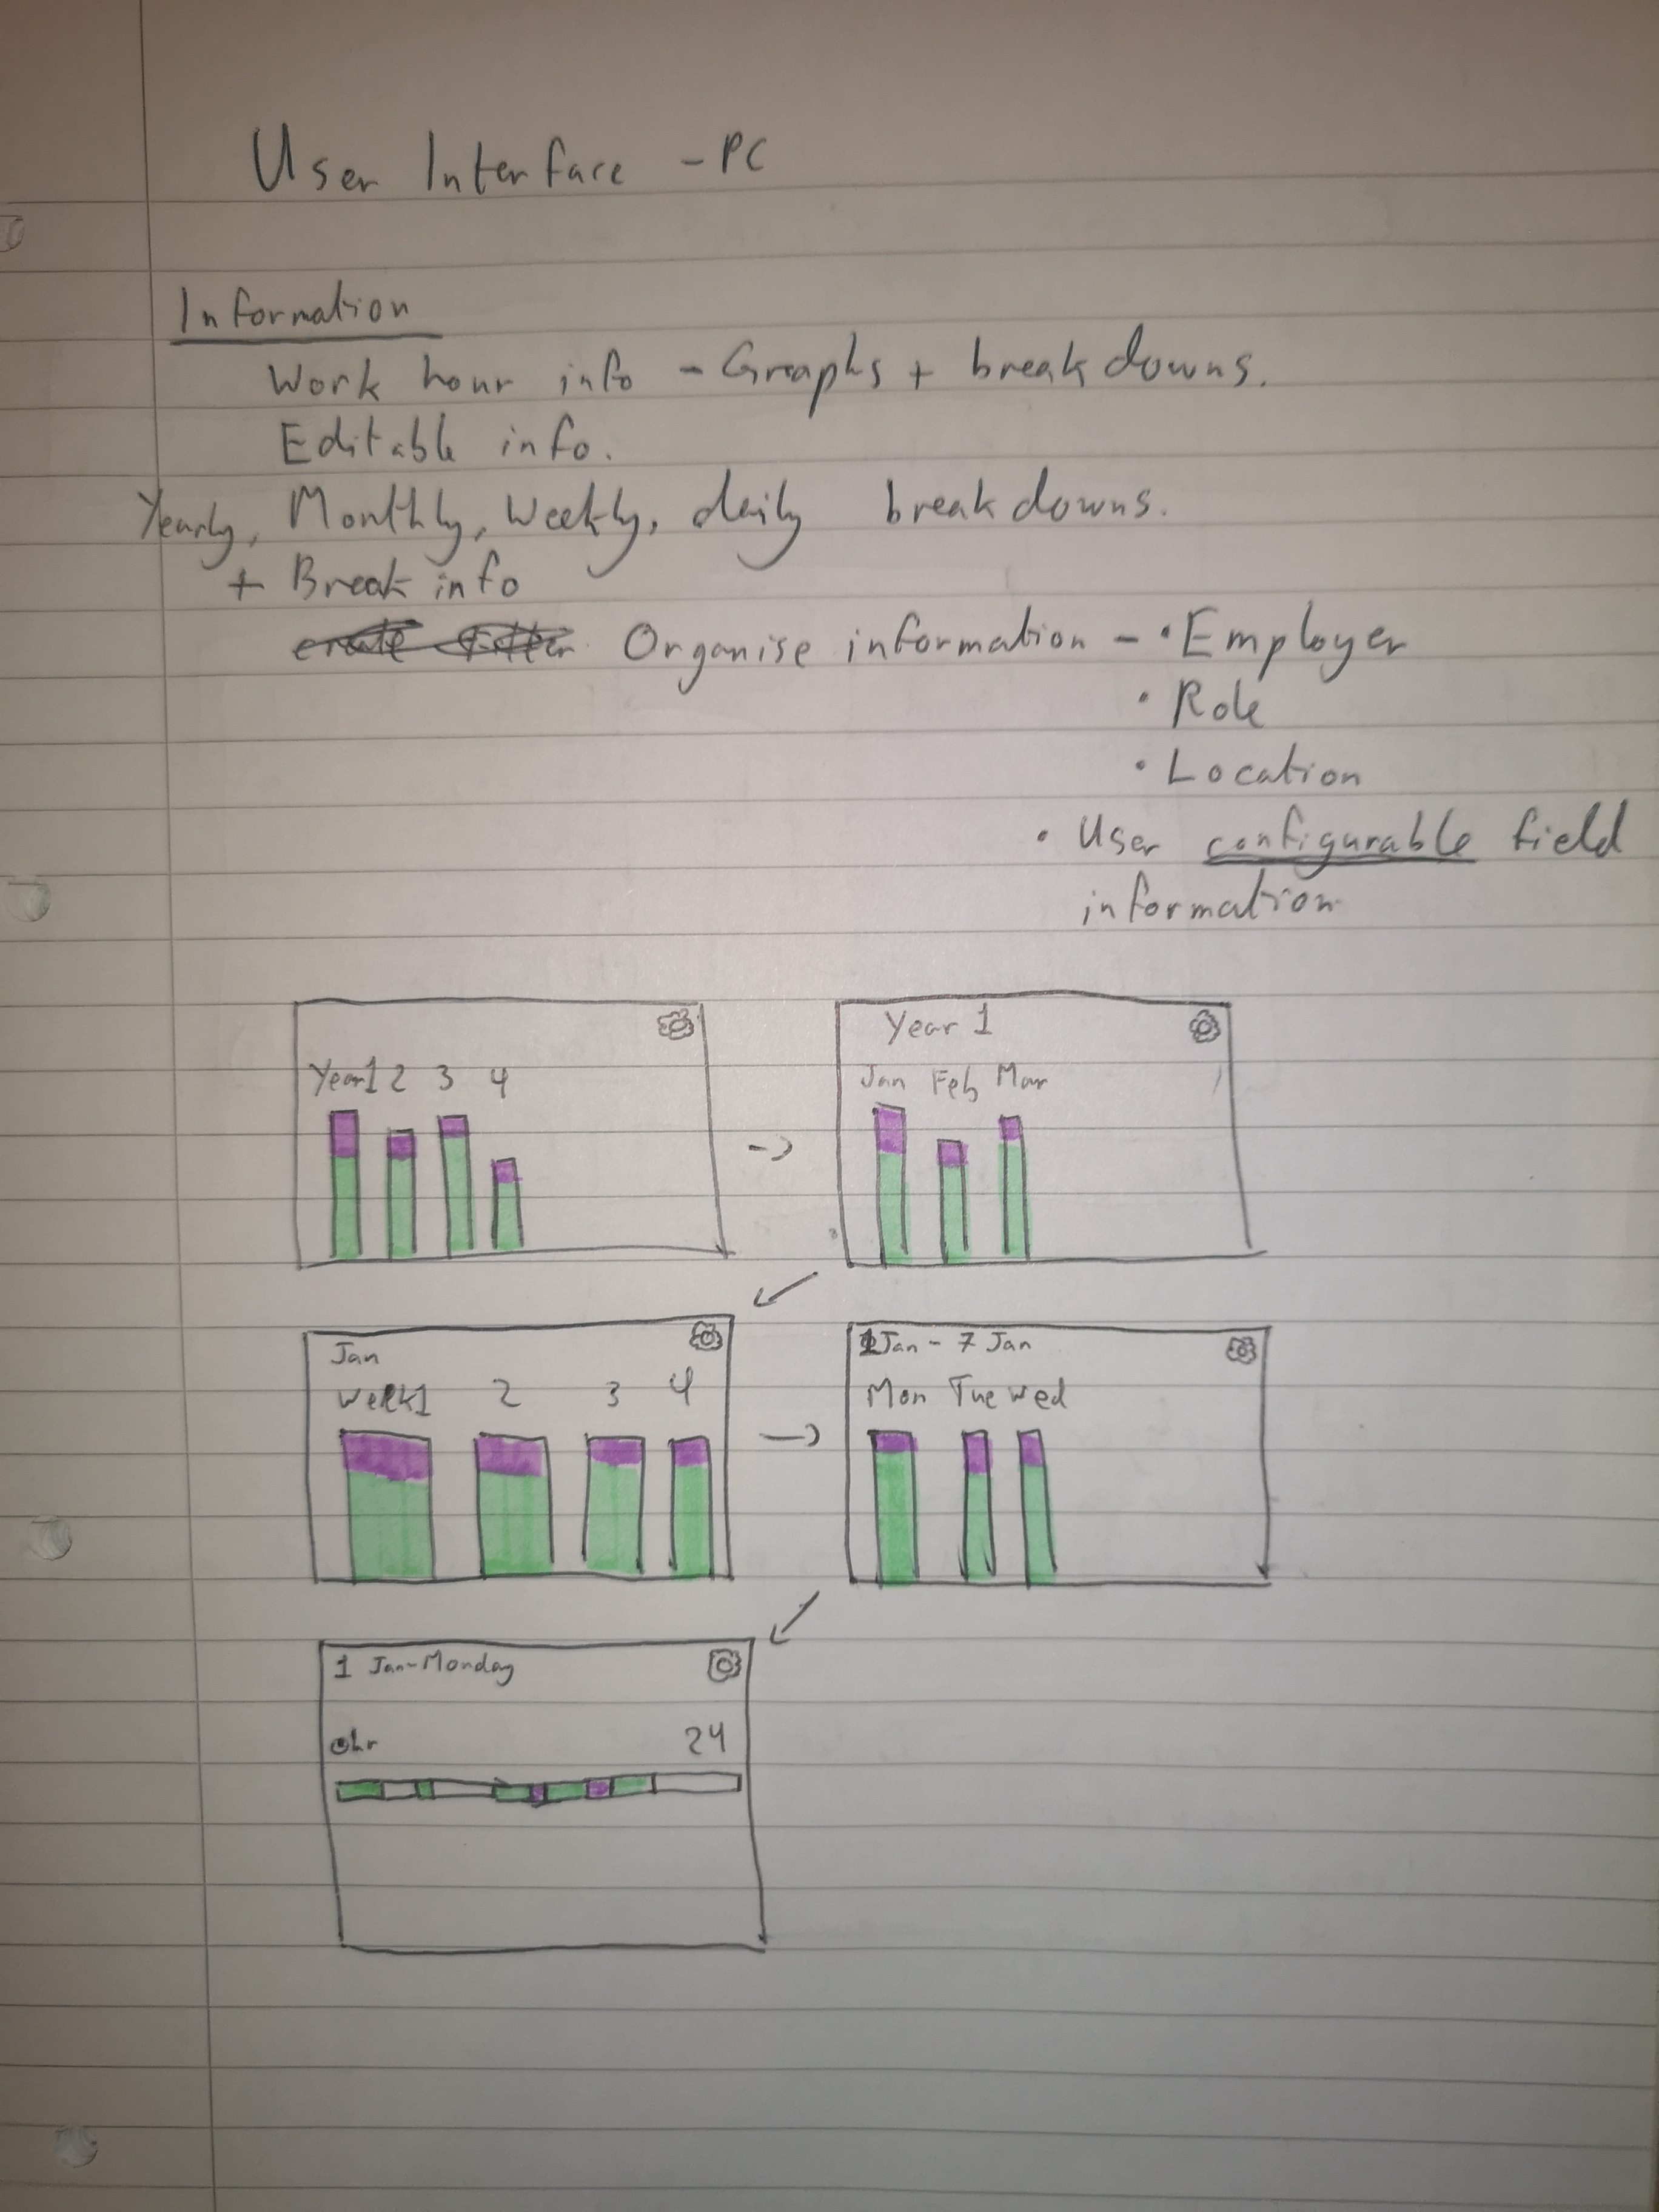 User Interface - PC
Information
Work hour info - Graphs + breakdowns.
Editable info.
Yearly, Monthly, Weekly, daily breakdowns.
+ Break info
Organise information - • Employer
• Role
• Location
• User configurable field
information
Year1 2 3 4
Year 1
Jan Feb Mar
Jan
Week1 2 3 4
1Jan - 7 Jan
Mon Tue Wed
1 Jan-Monday
0hr 24